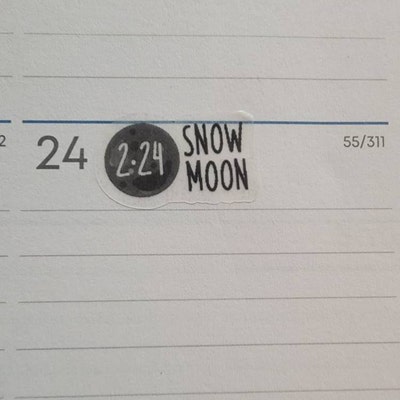 2
24
2.24
SNOW
MOON
55/311